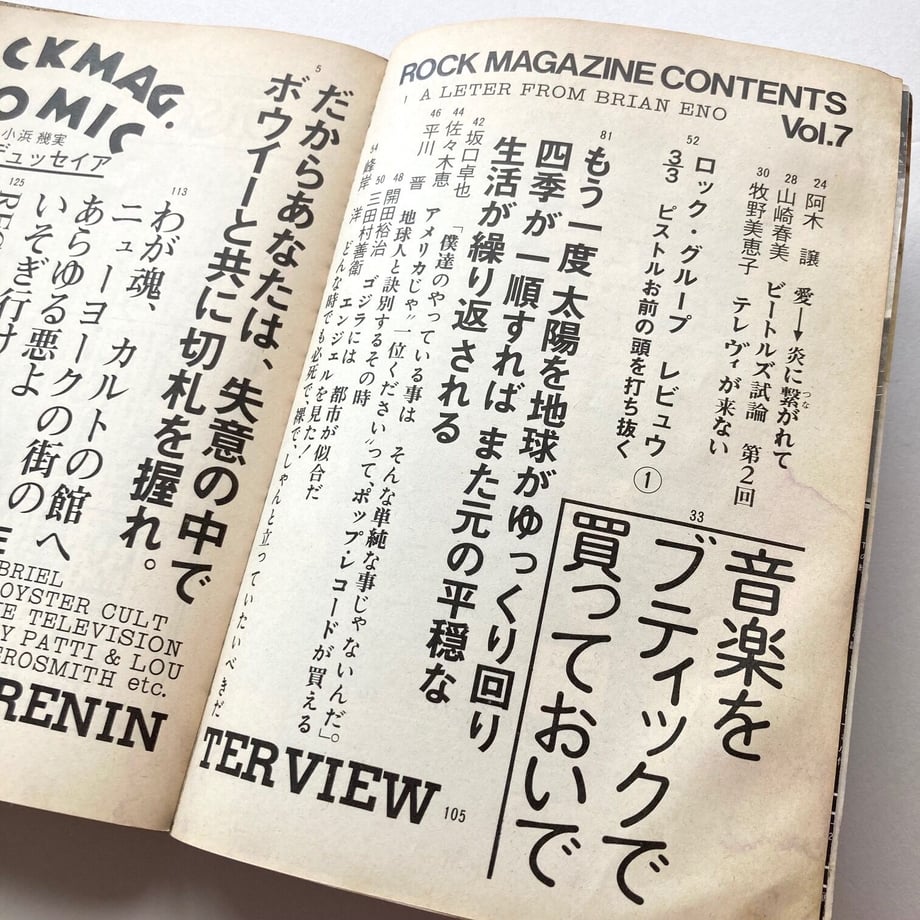 ROCK MAGAZINE CONTENTS
Vol.7
1 A LETER FROM BRIAN ENO
24 阿木 譲 愛→炎に繋がれて
つな
28 山崎春美 ビートルズ試論 第2回
30 牧野美恵子 テレヴィが来ない
52 ロック・グループ レビュウ ①
3/3 ピストルお前の頭を打ち抜く
33 音楽を
ブティックで
買っておいで
81 もう一度 太陽を地球がゆっくり回り
四季が一順すれば また元の平穏な
生活が繰り返される
42 坂口卓也 「僕達のやっている事は そんな単純な事じゃないんだ」。
44 佐々木恵 アメリカじゃ〝一位ください〟って、ポップ・レコードが買える
46 平川 晋 地球人と訣別するその時
48 開田裕治 ゴジラには 都市が似合だ
50 三田村善衛 エンジェルを見た!
54 峰岸 洋 どんな時でも必死で、裸で、しゃんと立っていたいべきだ
TER VIEW 105
5 だからあなたは、失意の中で
ボウイーと共に切札を握れ。
113 わが魂、カルトの館へ
ニューヨークの街の
あらゆる悪よ
いそぎ行け
125
OCKMAG.
OMIC
小浜 幾実
デュッセイア
BRIEL
OYSTER CULT
E TELEVISION
Y PATTI & LOU
EROSMITH etc.
RENIN